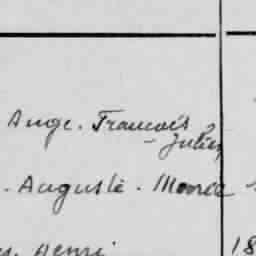 Ange. François
- Julien
. Auguste . Monée
Henri
18